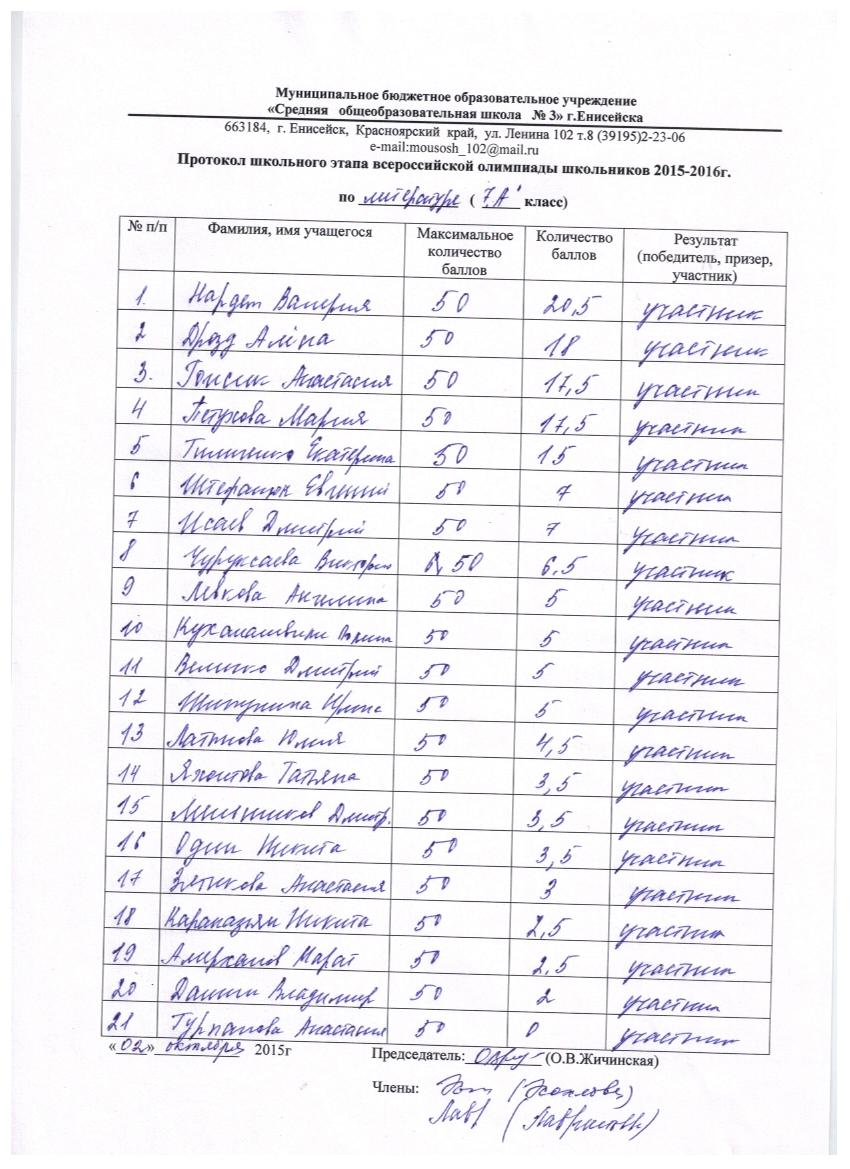 Муниципальное бюджетное образовательное учреждение
«Средняя общеобразовательная школа № 3» г.Енисейска
663184, г. Енисейск, Красноярский край, ул. Ленина 102 т.8 (39195)2-23-06
e-mail:mousosh_102@mail.ru
Протокол школьного этапа всероссийской олимпиады школьников 2015-2016г.
по литературе ( 7 "А" класс)
№ п/п Фамилия, имя учащегося Максимальное количество баллов Количество баллов Результат (победитель, призер, участник)
1. Валерия 50 20,5 участник
2 Дрозд Алина 50 18 участник
3. Анастасия 50 17,5 участник
4 Петухова Мария 50 17,5 участник
5 Екатерина 50 15 участник
6 Штефанюк Евгений 50 7 участник
7 Исаев Дмитрий 50 7 участник
8 Чуруксаева Виктория 50 6,5 участник
9 Левкова Ангелина 50 5 участник
10 50 5 участник
11 Величко Дмитрий 50 5 участник
12 Шипунина 50 5 участник
13 Латынова Юлия 50 4,5 участник
14 Татьяна 50 3,5 участник
15 Мельников Дмитр. 50 3,5 участник
16 Один Никита 50 3,5 участник
17 Зятикова Анастасия 50 3 участник
18 Никита 50 2,5 участник
19 Амерханов Марат 50 2,5 участник
20 Владимир 50 2 участник
21 Турпанова Анастасия 50 0 участник
«02» октября 2015г Председатель: (О.В.Жичинская)
Члены: